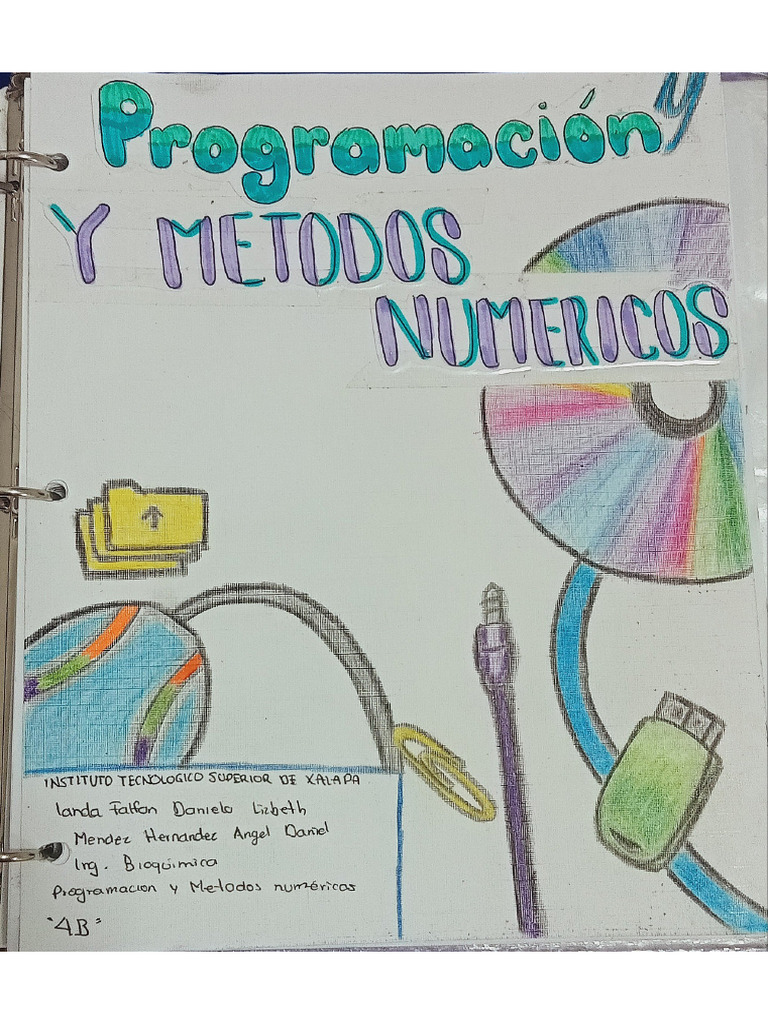 Programación y
Y METODOS
NUMERICOS
INSTITUTO TECNOLOGICO SUPERIOR DE XALAPA
Landa Falfan Daniela Lizbeth
Mendez Hernandez Angel Daniel
Ing. Bioquimica
Programacion y Metodos numéricos
"4B"